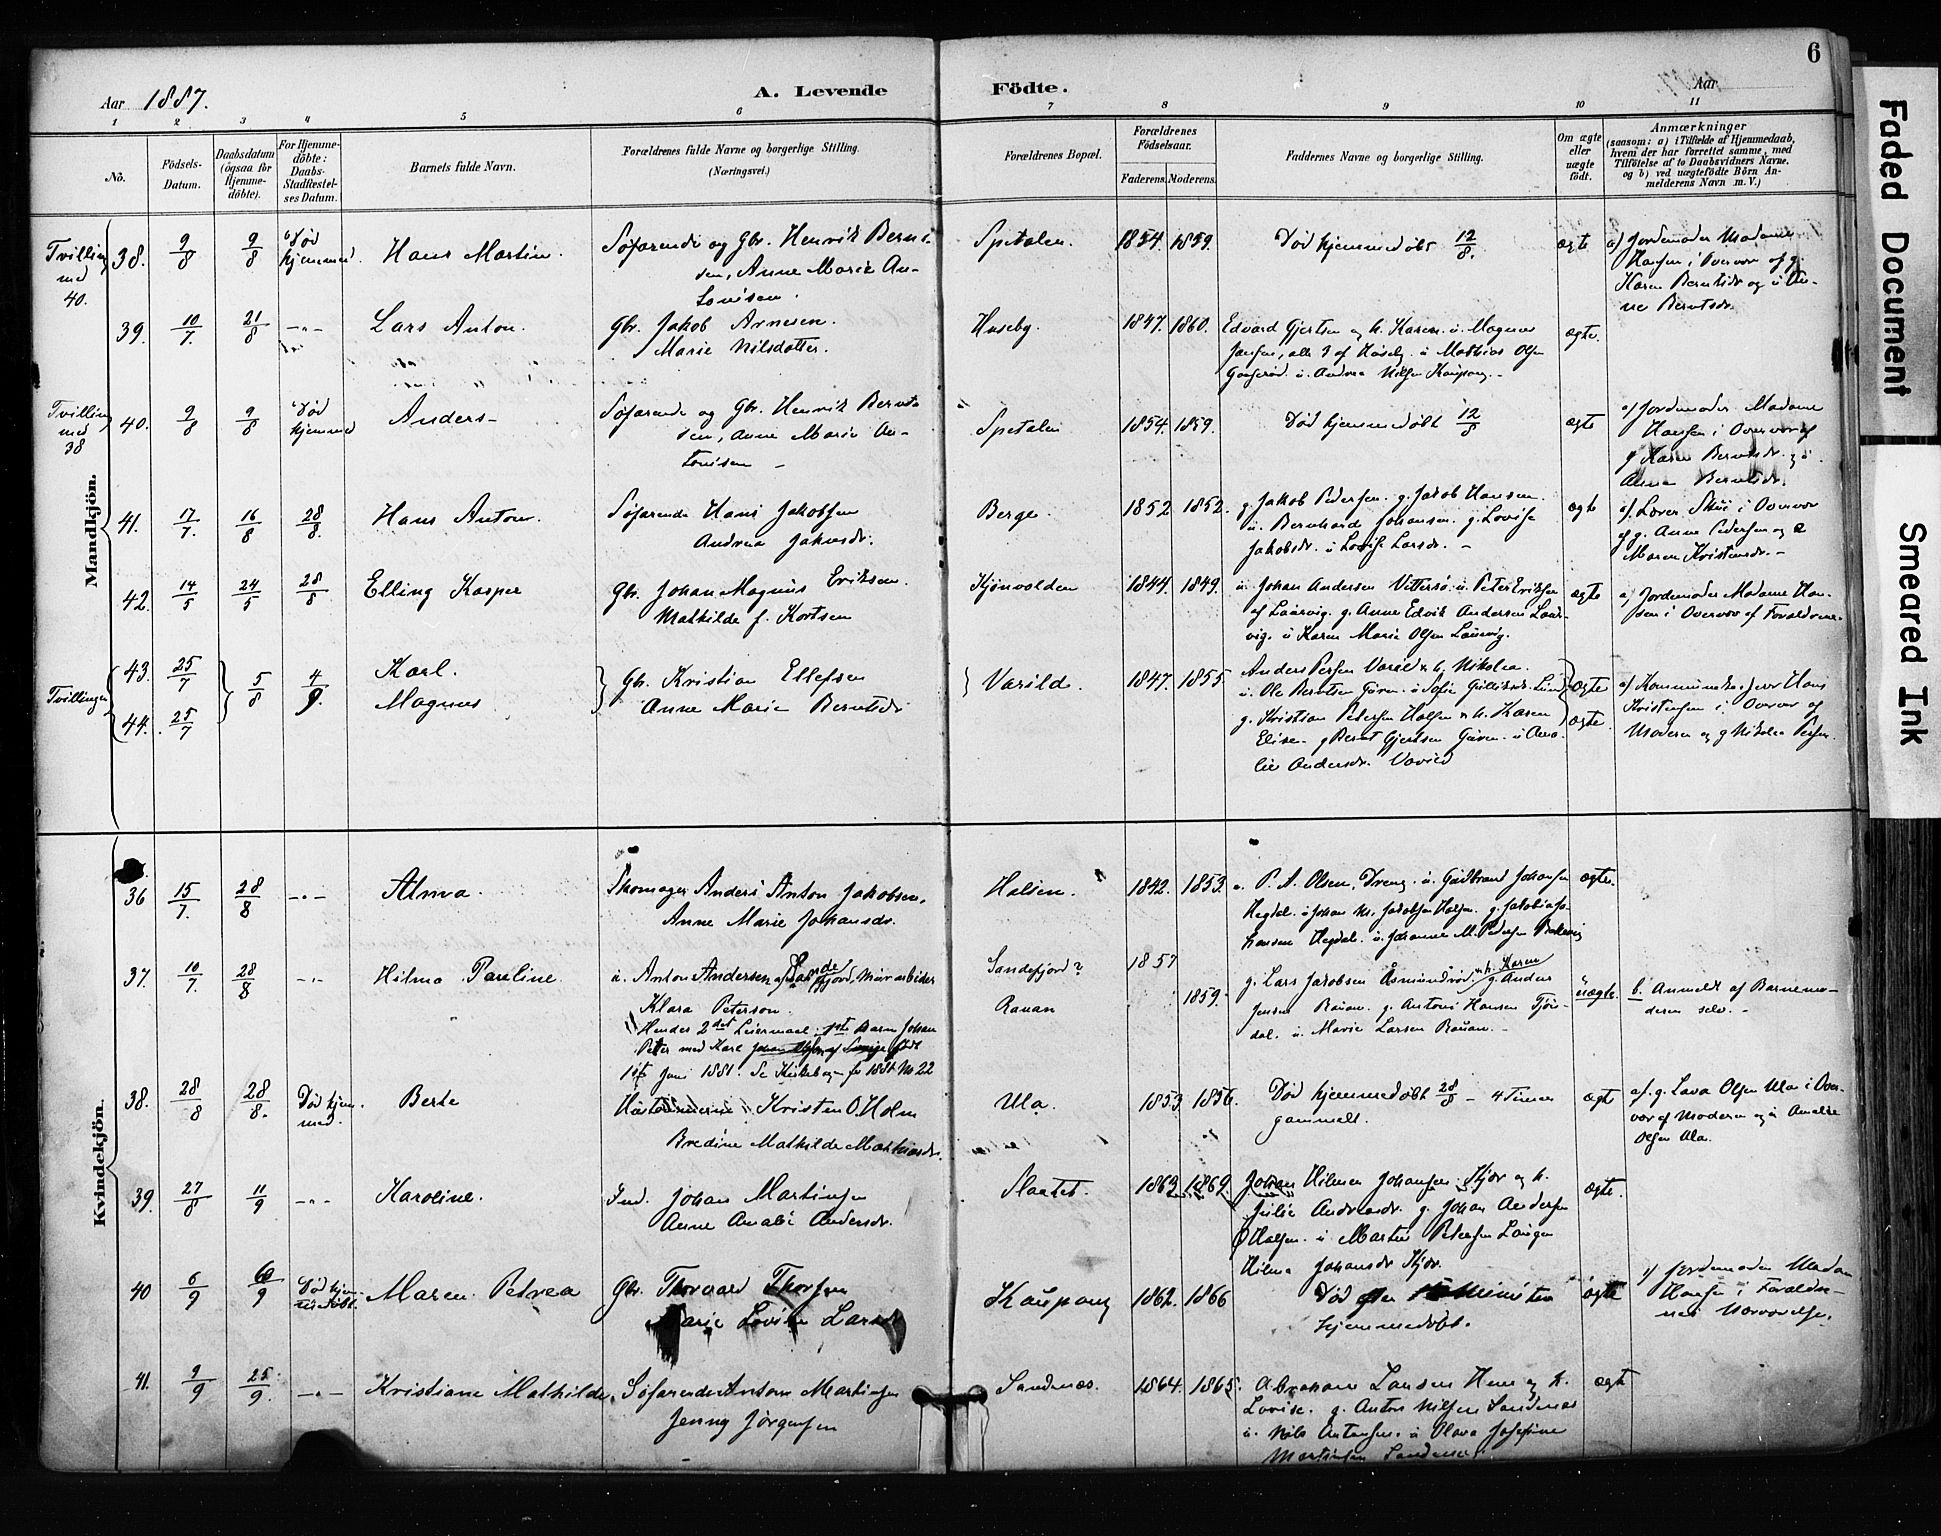 6
Aar 1887.
A. Levende
Födte.
Aar
1 2 3 4 5 6 7 8 9 10 11
No.
Födsels-
Datum.
Daabsdatum
(ogsaa for
Hjemme-
døbte).
For Hjemme-
døbte:
Daabs-
Stadfæstel-
ses Datum.
Barnets fulde Navn.
Forældrenes fulde Navne og borgerlige Stilling.
(Næringsvei.)
Forældrenes Bopæl.
Forældrenes
Fødselsaar.
Faderens.
Moderens.
Faddernes Navne og borgerlige Stilling.
Om ægte
eller
uægte
født.
Anmærkninger
(saasom: a) i Tilfælde af Hjemmedaab,
hvem der har forrettet samme, med
Tilføielse af to Daabsvidners Navne,
og b) ved uægtefødte Børn An-
melderens Navn m. V.)
Mandkjön.
Tvilling
med
40.
38. 9/8 9/8 Død
hjemmed
Hans Martin.
Søfarende og Gbr. Henrik Bernt-
sen, Anne Marie An-
tonisen.
Spetalen. 1854. 1859.
Død hjemmedøbt 12/8.
ægte
a) Jordemoder Madame
Hansen i Overvær af g.
Karen Berntsdr og ú An-
ne Berntsdr.
39. 10/7. 21/8 -„-
Lars Anton.
Gbr. Jakob Arnesen.
Marie Nilsdatter.
Huseby. 1847. 1860.
Edvard Gjertsen og h. Karen. ú. Magnus
Jensen, alle 3 af Huseby. ú Mathias Olsen
ú. Andrea Nilsen Kaupang. -
ægte.
Tvilling
med
38
40. 9/8 9/8 Død
hjemmed
Anders -
Søfarende og Gbr. Henrik Bernt-
sen, Anne Marie An-
tonisen -
Spetalen 1854. 1859.
Død hjemmedøbt 12/8
ægte
a) Jordemoder Madame
Hansen i Overvær af
g Karen Berntsdr. og ú.
Anna Berntsdr.
41. 17/7. 16/8 28/8.
Hans Anton.
Søfarende Hans Jakobsen
Andrea Jakobsdr.
Berge. 1852 1852.
g. Jakob Pedersen. g. Jakob Hansen.
ú. Bernhard Johansen. g. Lovise
Jakobsdr. ú Lovise Larsdr. -
ægte
a). Lærer Skúi i Overvær
af g. Anne Pedersen og
Maren Kristensdr. -
42. 14/5 24/5 28/8
Elling Kasper
Gbr. Johan Magnus Eriksen.
Mathilde f. Kortsen
Kjønvolden 1844. 1849.
ú. Johan Andersen Vittersø. ú Peter Eriksen
af Laúrvig. g. Anne Edvik Andersen Laúr-
vig. ú Karen Marie Olsen Laúrvig.
ægte
a) Jordemoder Madame Han-
sen i Overvær af Forældrene.
Tvillinger
43. 25/7
44. 25/7
5/8 4/9.
Karl.
Magnus
Gbr. Kristian Ellefsen
Anne Marie Berntsdr
Varild. 1847. 1855
Anders Persen Varild & h. Nikolea.
ú. Ole Berntsen Given. ú Sofie
g. Kristian Pedersen Halsen & h. Karen
Elise. g Bernt Gjertsen Given. ú Ama-
lie Andersdr. Varild
ægte
ægte.
a) Hans
Kristensen i Overvær af
Moderen og g Nikolea Persen.
Kvindekjön.
36 15/7. 28/8 -„-
Alma.
Skomager Anders Anton Jakobsen.
Anne Marie Johansdr.
Halsen. 1842. 1853.
ú. P. A. Olsen, Dreng. ú. Gúdbrand Johansen
Hegdal. ú Johan M. Jakobsen Halsen. g. Jakobia Jo-
hansen Hegdal. ú. Johanne M. Pedersen
ægte.
37. 10/7. 28/8 -„-
Hilma Paúline.
ú. Anton Andersen af Sandefjord, Múrarbeider
Klara Peterson.
Hendes 2det Leiermaal. 1ste Barn Johan
Peter med Karl
1ste Juni 1881. Se Kirkebogen for 1881 No 22
Sandefjord? 1857
Rauan 1859.
g. Lars Jakobsen Åsmundrød. & h. Karen g. Anders
Jensen Raúan. g. Antoni Hansen Tjø-
dal. ú. Marie Larsen Raúan. -
úægte.
b. Anmeldt af Barnemo-
deren selv. -
38. 28/8 28/8. Død hjem-
med.
Berte
Húustømmerm. Kristen O. Holm
Bredine Mathilde Mathiasdr.
Ula. 1853. 1856.
Død hjemmedøbt 28/8 - 4 Timer
gammelt.
ægte
a). g. Lava Olsen Ula i Over-
vær af Moderen og ú Amalie
Olsen Ula.
39. 27/8 11/9 -„-
Karoline.
Ind. Johan Martinsen
Anne Amalie Andersdr.
Slaatet. 1863. 1869.
Johan Hilmen Johansen. Skjør og h.
Júlie Andreasdr. g. Johan Andersen
Halsen. ú Martin Petersen Laúgen
Hilma Johansdr Skjør.
ægte.
40 6/9 6/9 Død hjem-
medøbt.
Maren Petrea
Gbr. Thorvard Thorsen
Marie Lovise Larsdr
Kaúpang 1862. 1866
Død efter 15 Minutter
hjemmedøbt.
ægte
a) Jordemoder Madam
Hansen i Forældre-
nes Nærværelse.
41. 9/9 25/9. -„-
Kristiane Mathilde.
Søfarende Anton Martinsen
Jenny Jørgensen
Sandnæs. 1864. 1865.
Abraham Larsen Hem og h.
Lovise. g. Anton Nilsen Sandnæs
ú. Nils Antonsen. ú Olava Josefine
Martinsen Sandnæs.
ægte
Faded Document
Smeared Ink